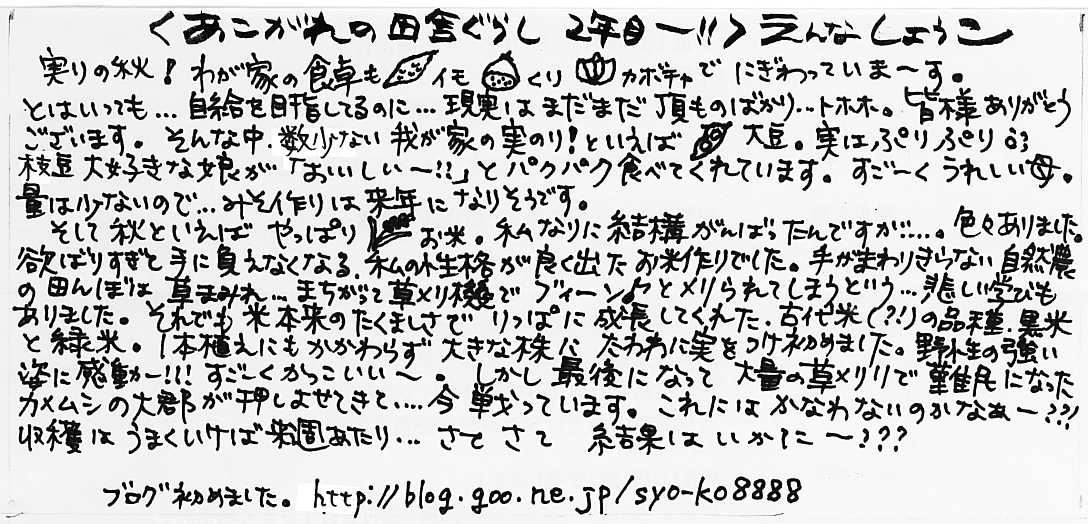 〈あこがれの田舎ぐらし 2年目～!!〉えんなしょうこ
実りの秋！わが家の食卓も イモ くり カボチャで にぎわっていま～す。
とはいっても…自給を目指してるのに…現実はまだまだ頂ものばかり…トホホ。皆様ありがとう
ございます。そんな中、数少ない我が家の実のり！といえば 大豆。実はぷりぷり
枝豆大好きな娘が「おいしい～!!」とパクパク食べてくれています。すご～くうれしい母。
量は少ないので…みそ作りは来年になりそうです。
そして秋といえば やっぱり お米。私なりに結構がんばったんですが…。色々ありました。
欲ばりすぎと手に負えなくなる、私の性格が良く出たお米作りでした。手がまわりきらない自然農
の田んぼは草まみれ…まちがって草メリ機でブィーン♪とメリられてしまうという…悲しい学びも
ありました。それでも米本来のたくましさで りっぱに成長してくれた、古代米(?!)の品種、黒米
と緑米。1本植えにもかかわらず大きな株に たわわに実をつけ初めました。野性の強い
姿に感動ー!!!すごーくかっこいい～。しかし最後になって 大量の草メリリで難民になった
カメムシの大郡が押しよせてきて…今戦っています。これにはかなわないのかなぁー??!
収穫はうまくいけば来週あたり…さて さて 結果はいかに～???
ブログ初めました。http://blog.goo.ne.jp/syo-ko8888